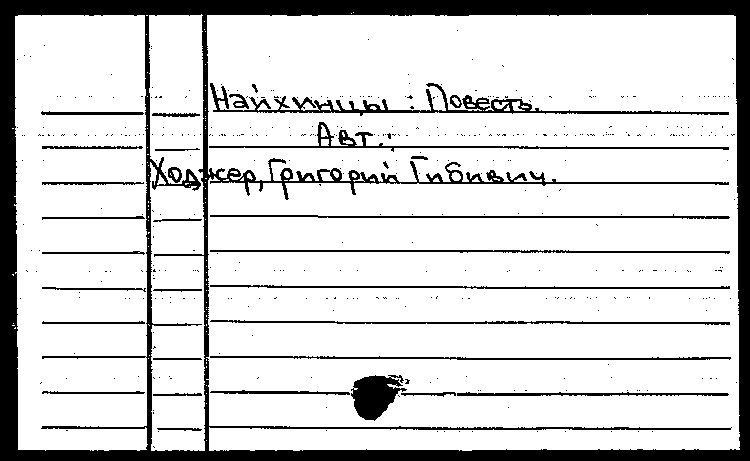 Найхинцы : Повесть.
Авт.:
Ходжер, Григорий Гибивич.